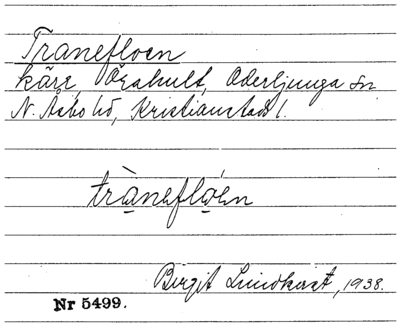 Tranefloen
kärr, Örahult, Oderljunga sn
N. Åsbo hd, Kristianstads l.
tràneflóen
Birgit Lindkvist, 1938.
Nr 5499.